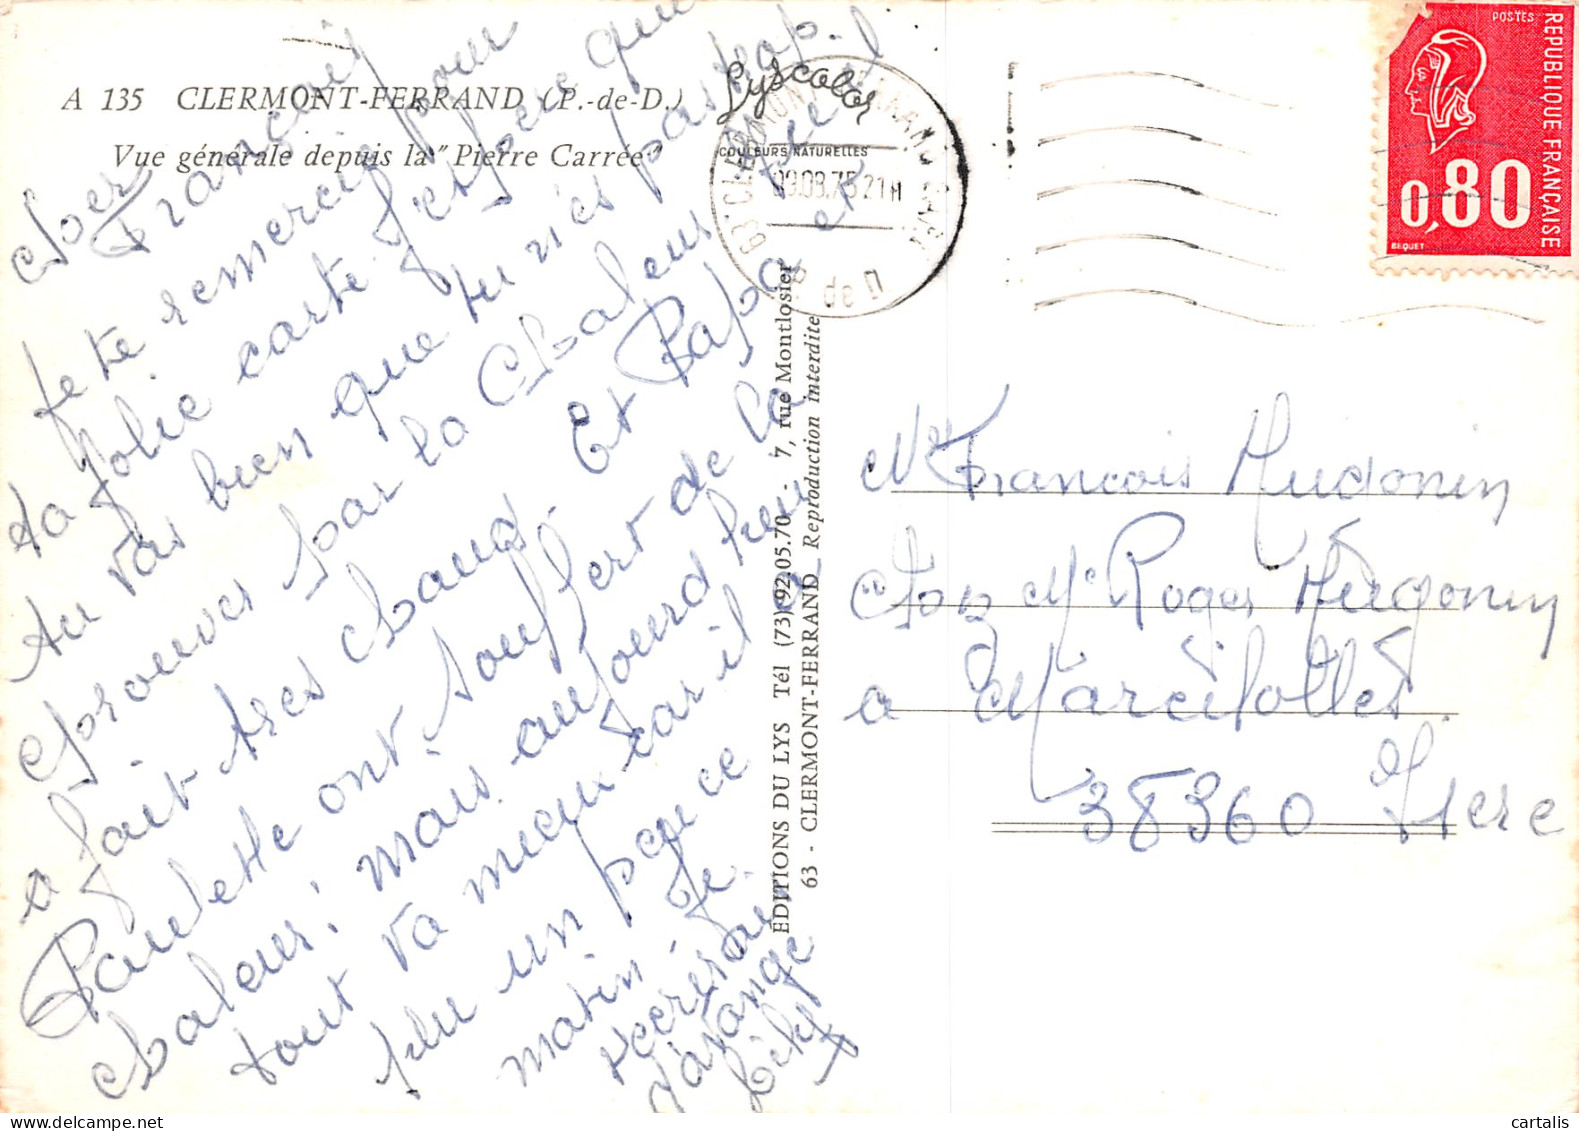 A 135 CLERMONT-FERRAND (P.-de-D.)
Vue générale depuis la "Pierre Carrée"
Cher François
je te remercie pour
ta jolie carte j'espère que
tu vas bien que tu n'es pas trop
éprouver par la chaleur
a fait très chaud. Et Papa et
Paulette ont souffert de la
chaleur; mais aujourd'hui
tout va mieux car il a
plu un peu ce
matin. Je
Lyscolor
COULEURS NATURELLES
63 CLERMONT FERRAND
09.08.75 21H
P. de D
ÉDITIONS DU LYS Tél (73) 92.05.70 - 7, rue Montlosier
63 - CLERMONT-FERRAND Reproduction interdite
POSTES
REPUBLIQUE FRANÇAISE
0,80
BEQUET
Mr Francois Hugonin
Chez Mr Roger Hugonin
a Marcilolles
38360 Isere